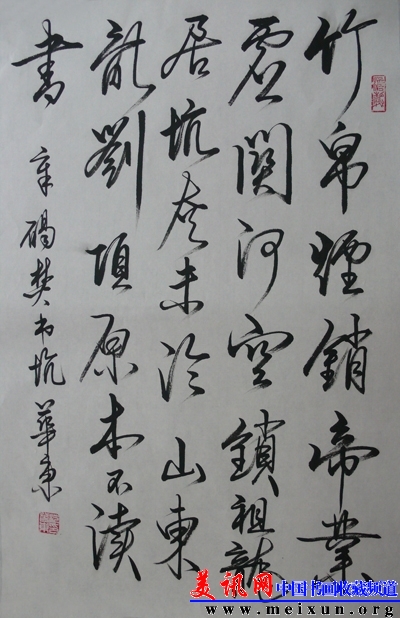 竹帛煙銷帝業
虛關河空鎖祖龍
居坑灰未冷山東
亂劉項原本不读
書
章碣焚书坑 華
美讯网 中国书画收藏频道
www.meixun.org